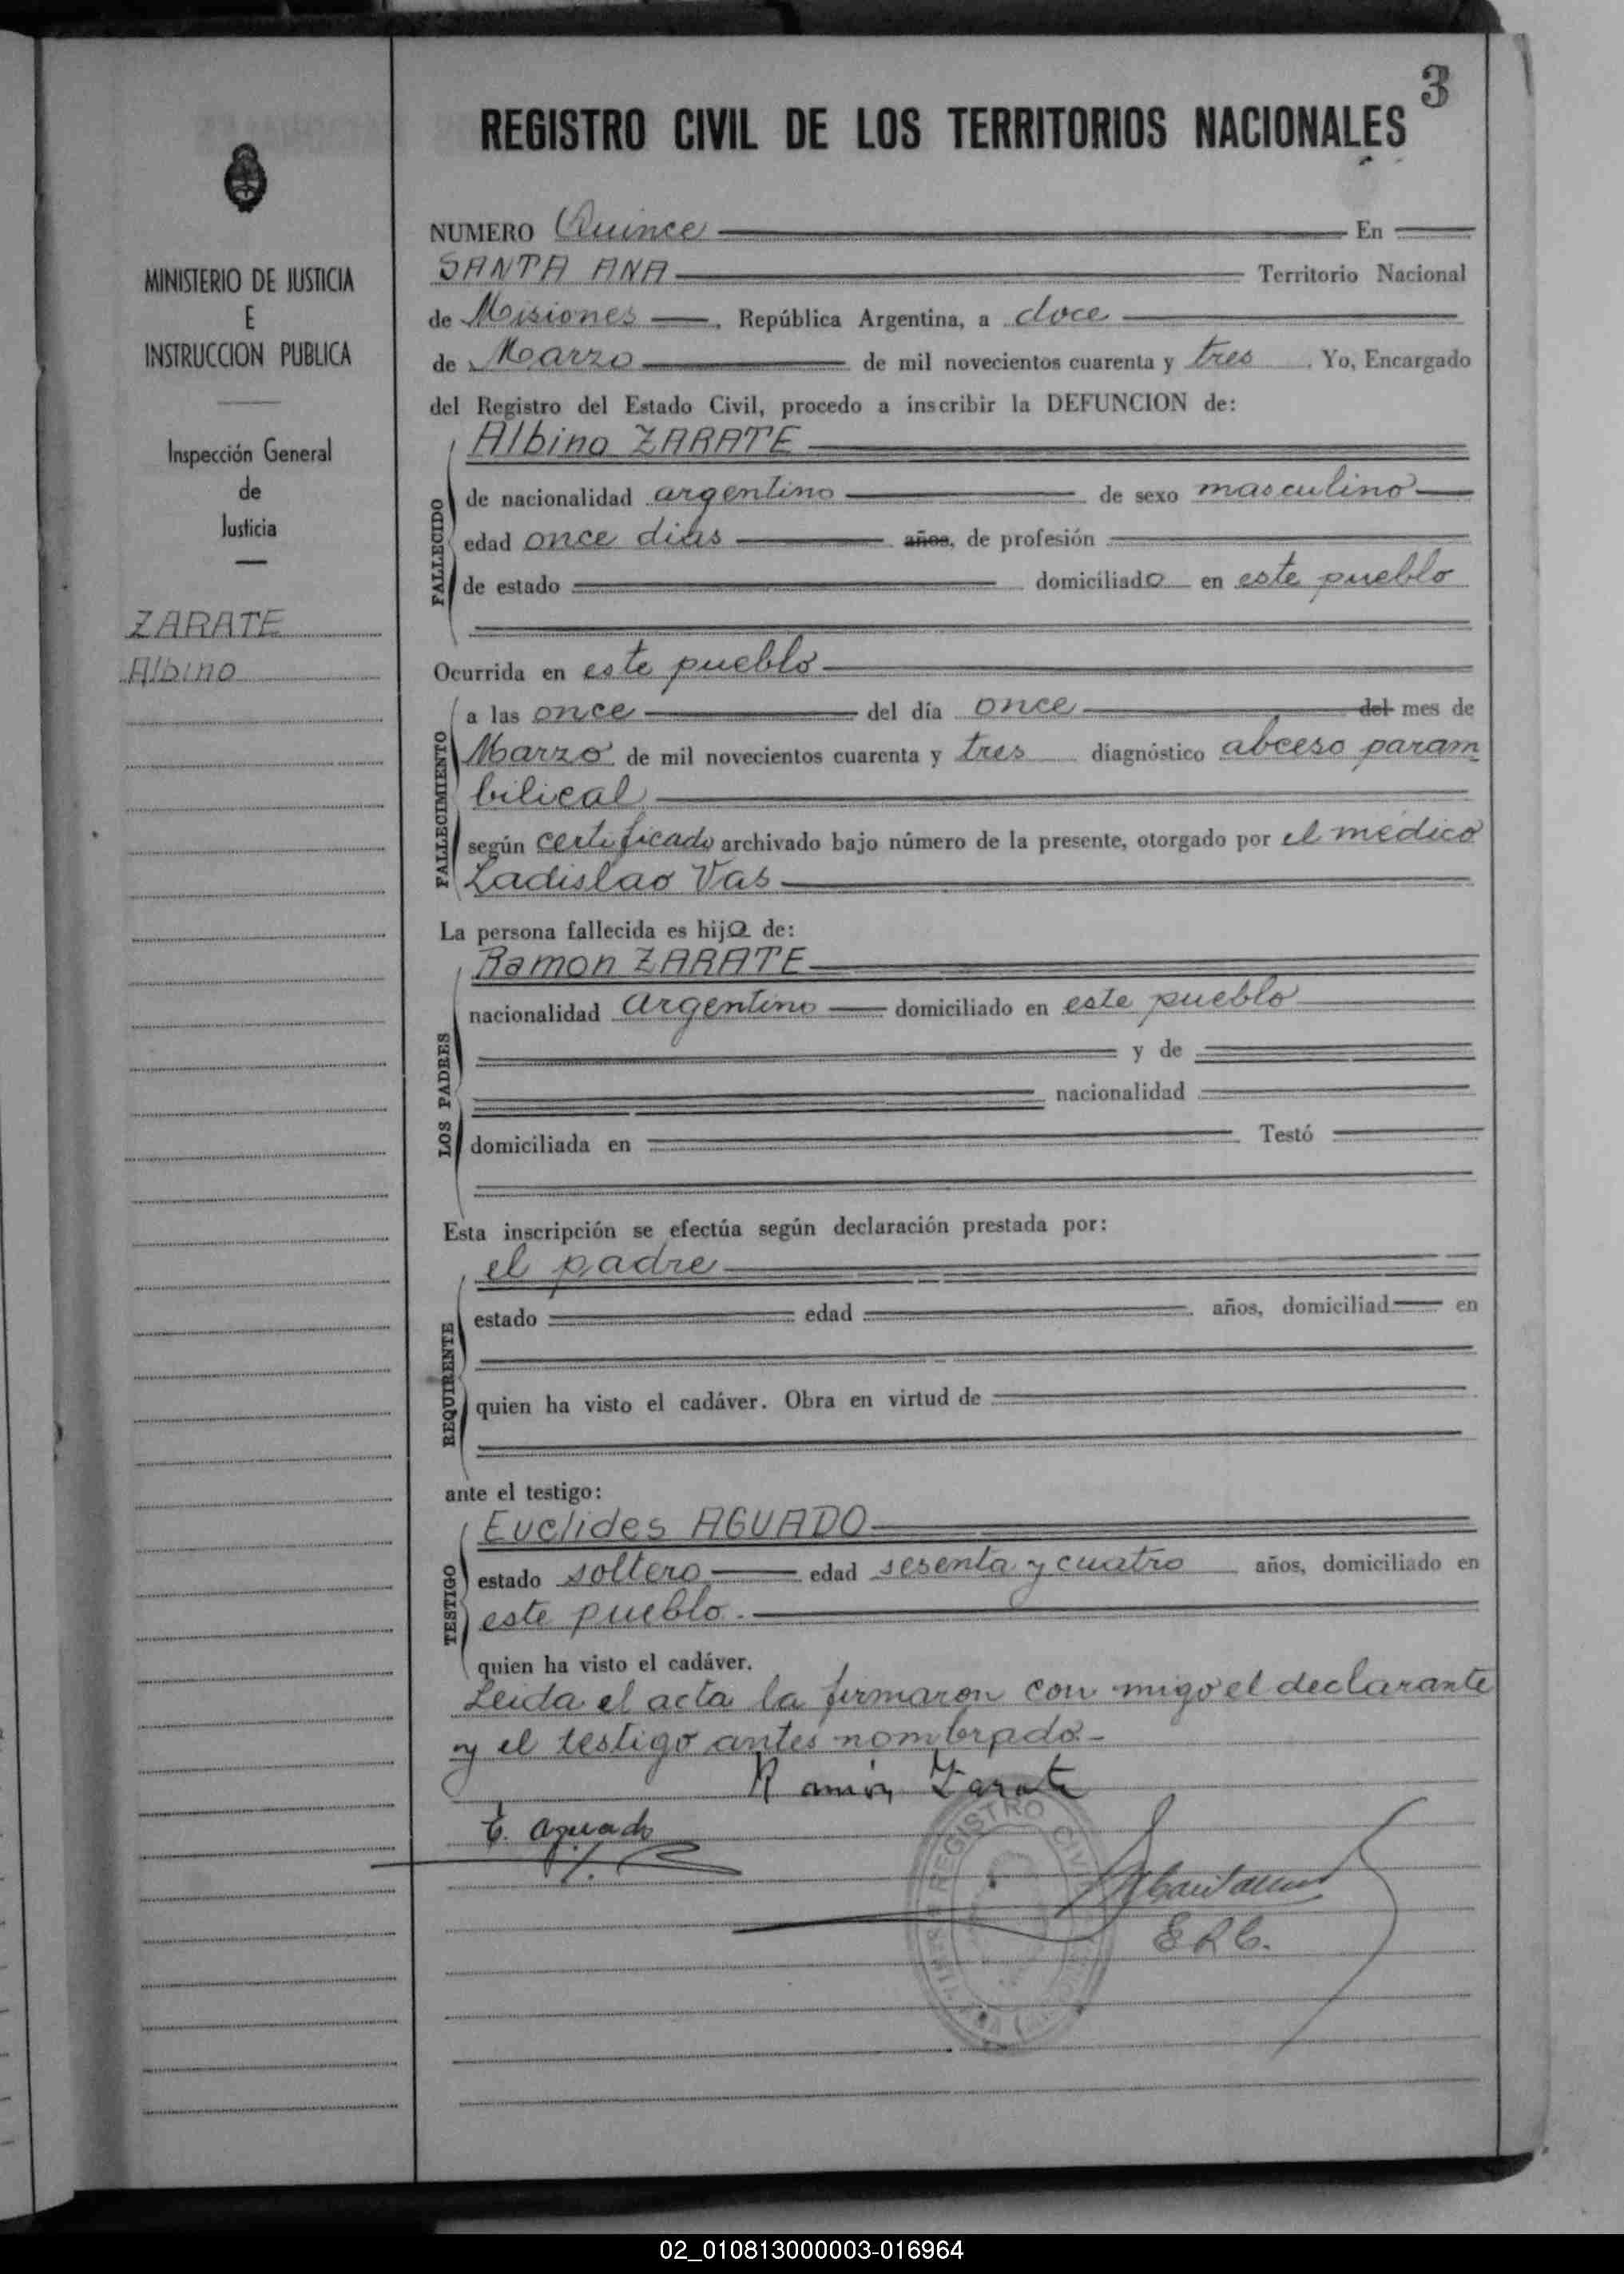 3
REGISTRO CIVIL DE LOS TERRITORIOS NACIONALES
MINISTERIO DE JUSTICIA
E
INSTRUCCION PUBLICA
Inspección General
de
Justicia
ZARATE
Albino
NUMERO Quince En
SANTA ANA Territorio Nacional
de Misiones, República Argentina, a doce
de Marzo de mil novecientos cuarenta y tres. Yo, Encargado
del Registro del Estado Civil, procedo a inscribir la DEFUNCION de:
FALLECIDO
Albino ZARATE
de nacionalidad argentino de sexo masculino
edad once dias años, de profesión
de estado domiciliado en este pueblo
Ocurrida en este pueblo
FALLECIMIENTO
a las once del día once del mes de
Marzo de mil novecientos cuarenta y tres diagnóstico abceso param
bilical
según certificado archivado bajo número de la presente, otorgado por el médico
Ladislao Vas
La persona fallecida es hijo de:
LOS PADRES
Ramon ZARATE
nacionalidad argentino domiciliado en este pueblo
y de
nacionalidad
domiciliada en Testó
Esta inscripción se efectúa según declaración prestada por:
REQUIRENTE
el padre
estado edad años, domiciliad en
quien ha visto el cadáver. Obra en virtud de
ante el testigo:
TESTIGO
Euclides AGUADO
estado soltero edad sesenta y cuatro años, domiciliado en
este pueblo.
quien ha visto el cadáver.
Leida el acta la firmaron con migo el declarante
y el testigo antes nombrado-
Ramón Zarate
E. Aguado
REGISTRO CIVIL
E R C.
02_010813000003-016964